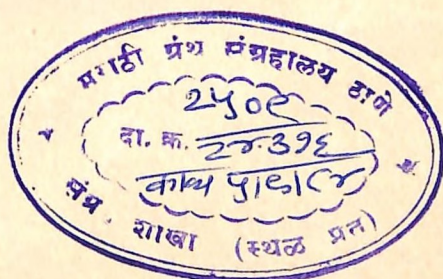 मराठी ग्रंथ संग्रहालय ठाणे
२५०९
दा. क्र. २४३१६
काव्य
संग्र शाखा (स्थळ प्रत)